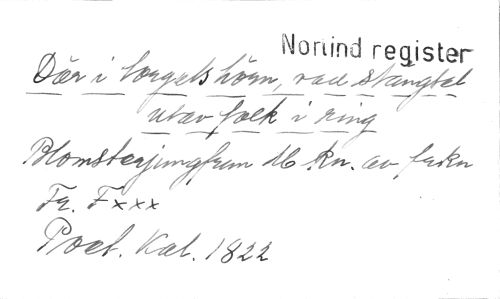 Norlind register
Där i torgets hörn, vad stängsel
utav folk i ring
Blomsterjungfrun 16 kn. av frkn
Fr. Fxxx
Poet. Kal. 1822